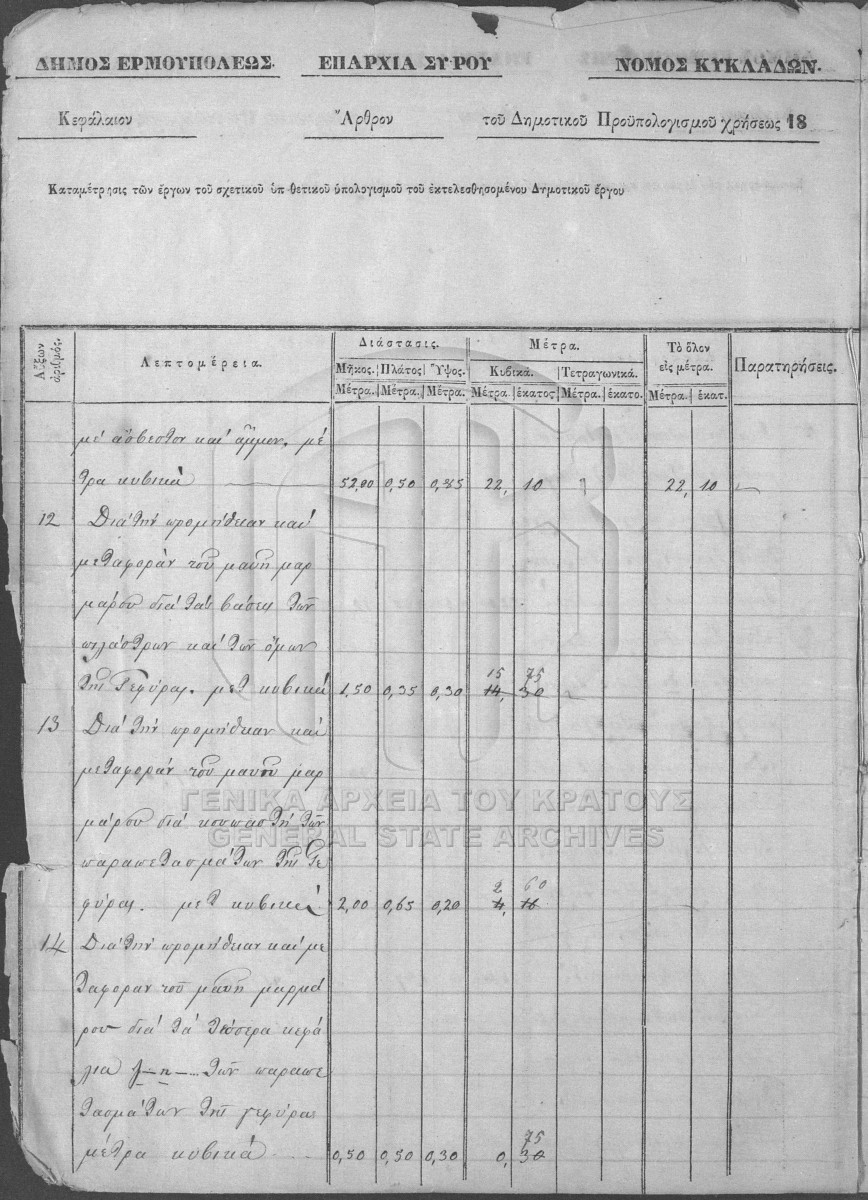 ΔΗΜΟΣ ΕΡΜΟΥΠΟΛΕΩΣ. ΕΠΑΡΧΙΑ ΣΥΡΟΥ ΝΟΜΟΣ ΚΥΚΛΑΔΩΝ.
Κεφάλαιον Ἄρθρον τοῦ Δημοτικοῦ Προϋπολογισμοῦ χρήσεως 18
Καταμέτρησις τῶν ἔργων τοῦ σχετικοῦ ὑπ θετικοῦ ὑπολογισμοῦ τοῦ ἐκτελεσθησομένου Δυμοτικοῦ ἔργου
Αὔξων ἀριθμός. Λεπτομέρεια. Διάστασις. Μέτρα. Τὸ ὅλον εἰς μέτρα. Παρατηρήσεις.
Μῆκος. Πλάτος Ὕψος. Κυβικά. Τετραγωνικά.
Μέτρα. Μέτρα. Μέτρα. Μέτρα. ἑκατος Μέτρα. ἑκατο. Μέτρα. ἑκατ.
μέ ἄσβεστον καί ἄμμον. μέ
τρα κυβικά 52,00 0,50 0,85 22, 10 22, 10
12 Διά τήν προμήθειαν καί
μεταφοράν τοῦ μαύρου μαρ
μάρου διά τάς βάσεις τῶν
πιλάστρων καί τῶν ὤμων
15 75
τῆς Γεφύρας. μετ κυβικά 1,50 0,35 0,30 14, 30
13 Διά τήν προμήθειαν καί
μεταφοράν τοῦ μαύρου μαρ
μάρου διά κουπαστή τῶν
παραπετασμάτων τῆς Γε
2 60
φύρας. μετ κυβικά 2,00 0,65 0,20 4, 16
14 Διά τήν προμήθειαν καί με
ταφοράν τοῦ μαύρου μαρμά
ρου διά τά τέσσερα κεφά
λια τῶν παραπε
τασμάτων τῆς γεφύρας
75
μέτρα κυβικά 0,50 0,50 0,30 0, 30
ΓΕΝΙΚΑ ΑΡΧΕΙΑ ΤΟΥ ΚΡΑΤΟΥΣ
GENERAL STATE ARCHIVES